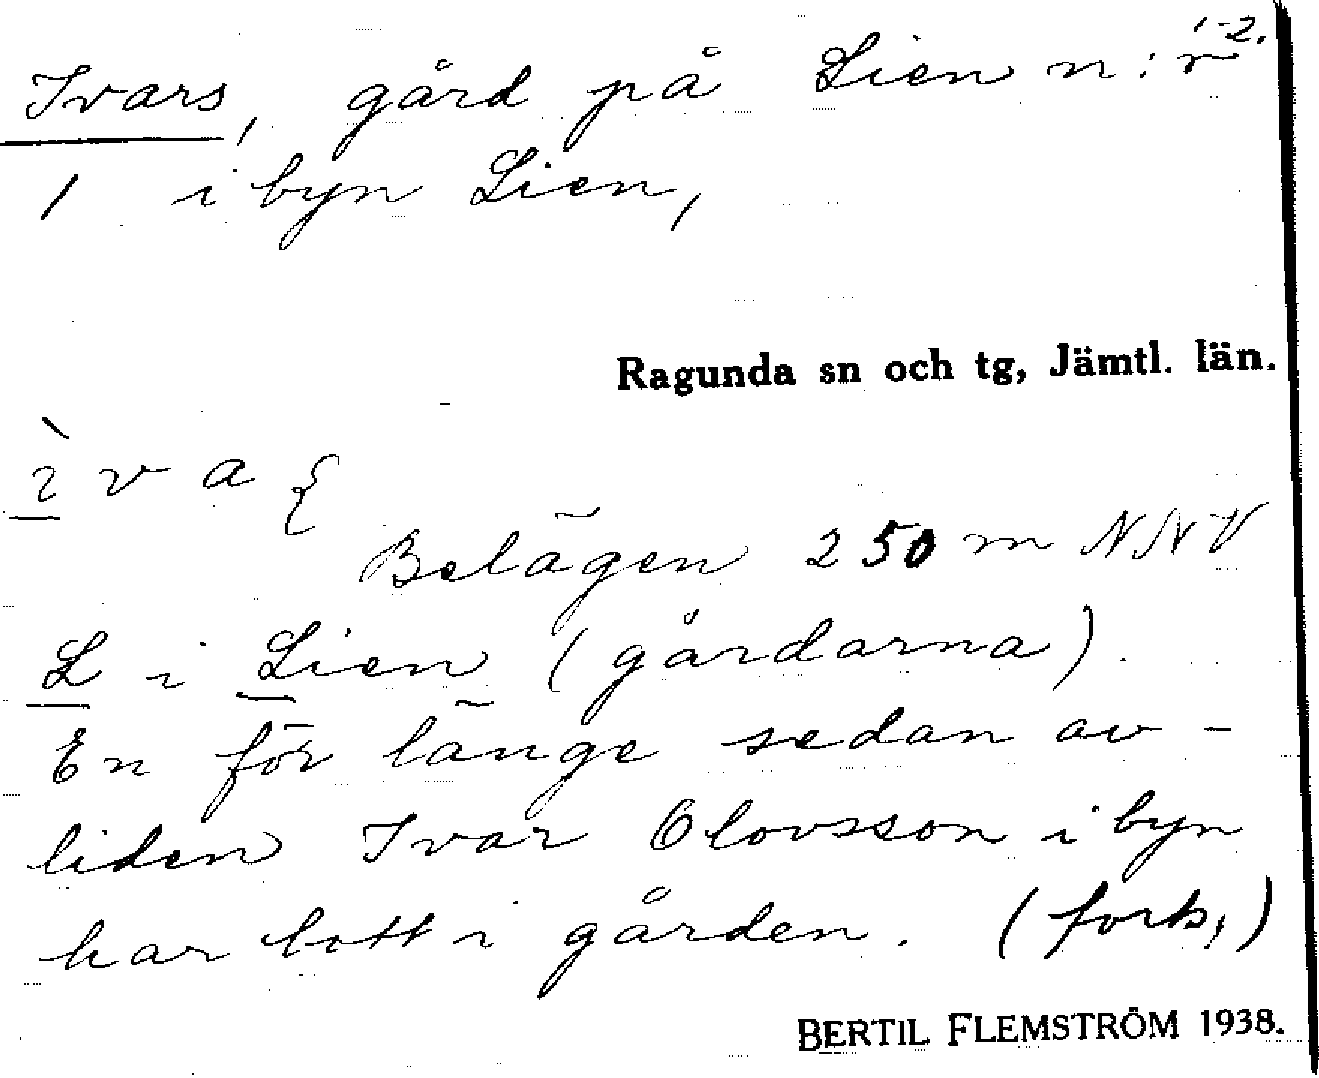 1-2.
Ivars, gård på Lien n:r
1 i byn Lien,
Ragunda sn och tg, Jämtl. län.
Belägen 250 m NNV
L i Lien (gårdarna).
En för länge sedan av-
liden Ivar Olovsson i byn
har bott i gården. (forts,)
BERTIL FLEMSTRÖM 1938.